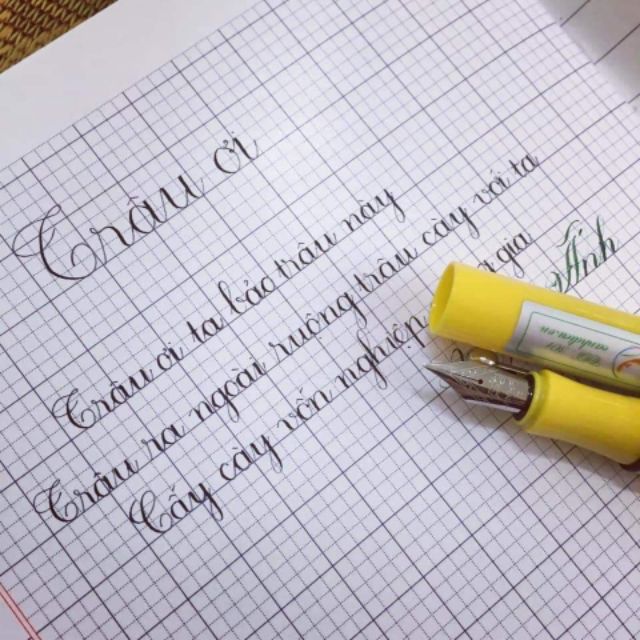 Trâu ơi
Trâu ơi ta bảo trâu này
Trâu ra ngoài ruộng trâu cày với ta
Cấy cày vốn nghiệp gia